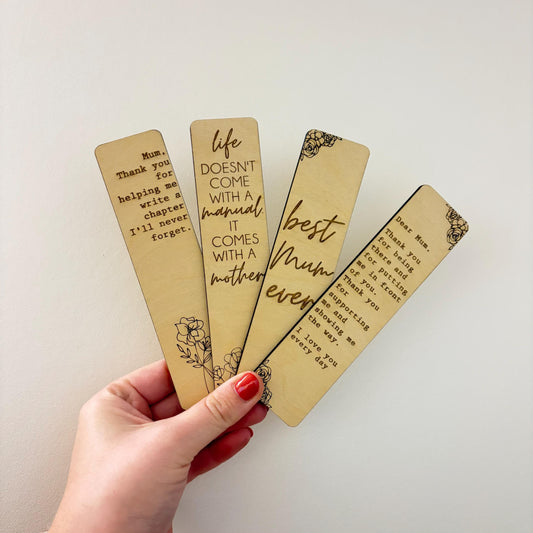 Mum,
Thank you
for
helping me
write a
chapter
I'll never
forget.
life
DOESN'T
COME
WITH A
manual.
IT
COMES
WITH A
mother
best
Mum
ever
Dear Mum,
Thank you
for being
there and
for putting
me in front
of you.
Thank you
for
supporting
me and
showing me
the way.
I love you
every day